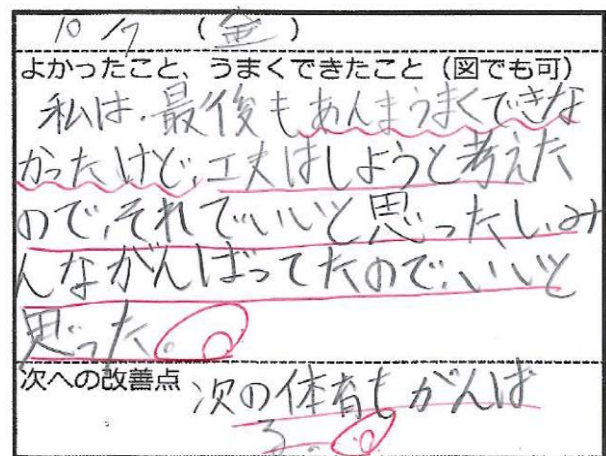 10/7 (金)
よかったこと、うまくできたこと（図でも可）
私は、最後もあんまうまくできな
かったけど、工夫はしようと考えた
ので、それでいいと思ったし、み
んながんばってたので、いいと
思った。
次への改善点 次の体育もがんば
る。